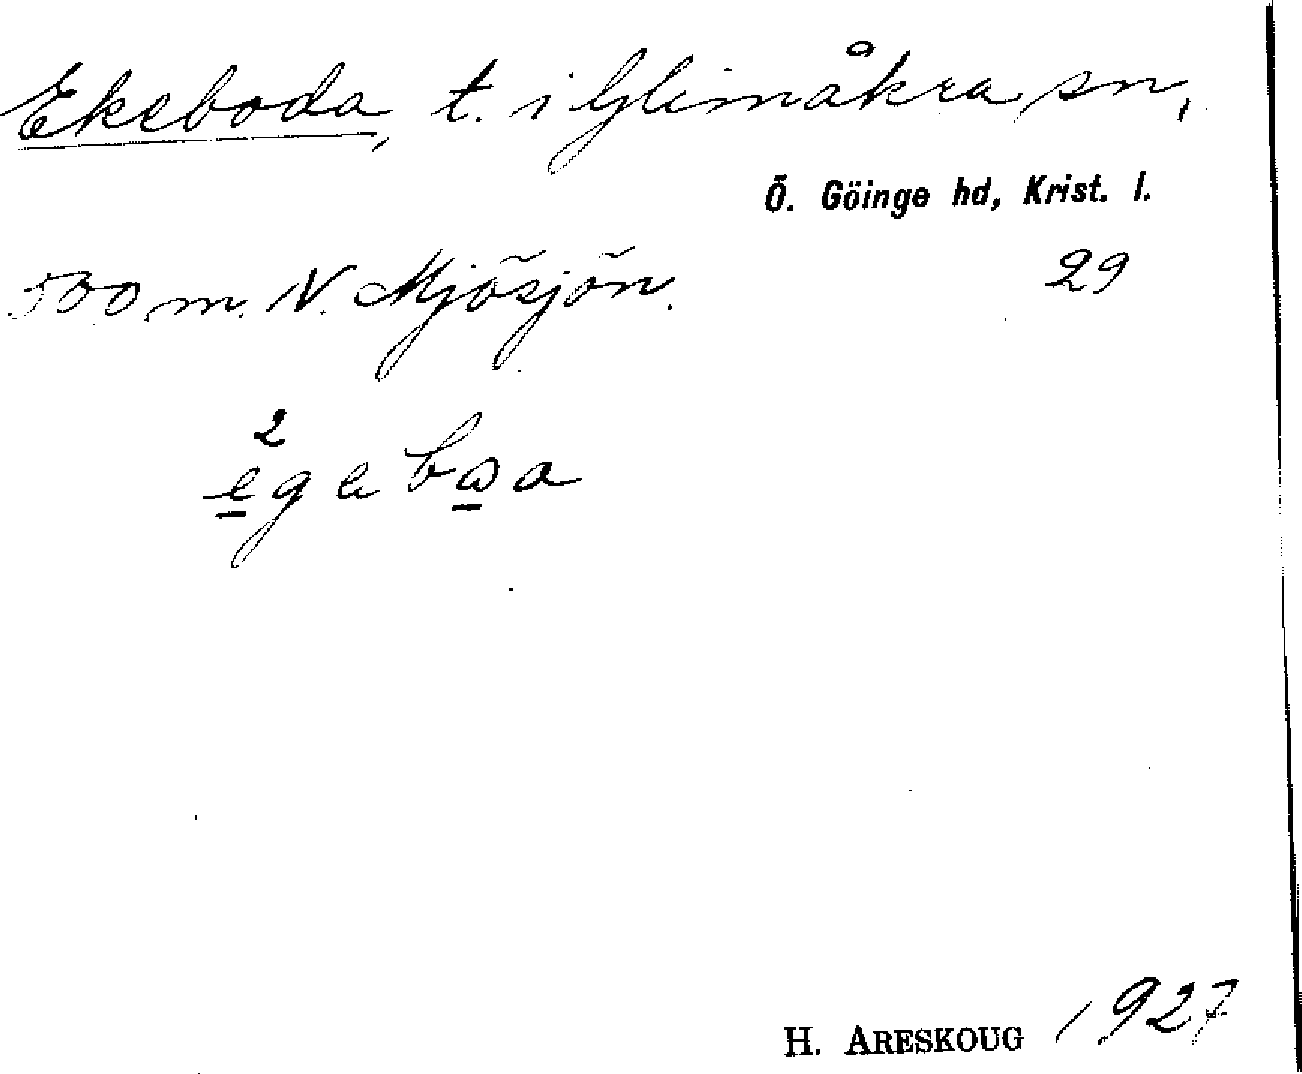 Ekeboda, t. i Glimåkra sn,
Ö. Göinge hd, Krist. l.
500 m. N. Mjösjön. 29
2
egebωa
H. ARESKOUG 1927